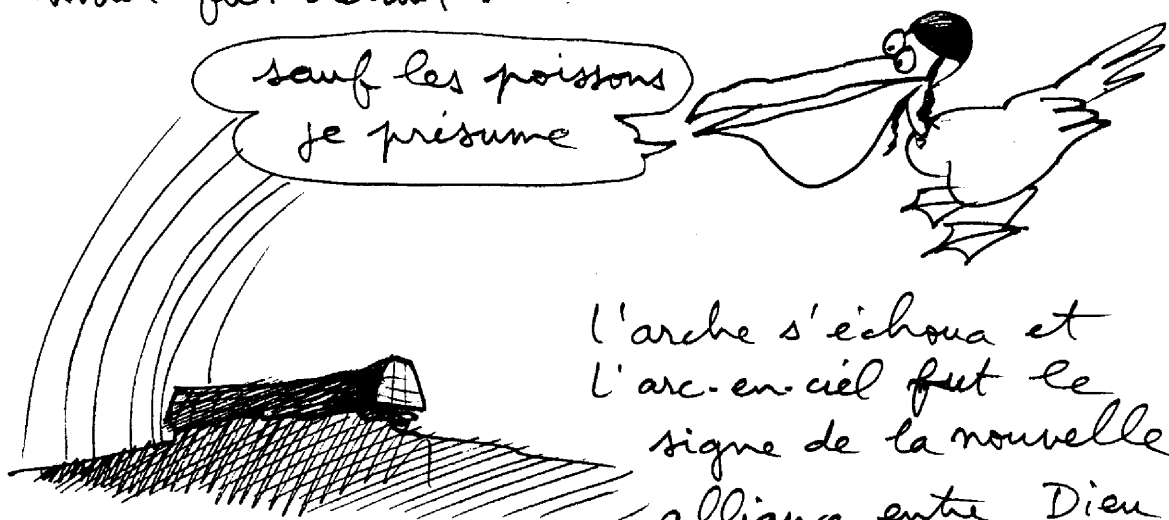 sauf les poissons
je présume
l'arche s'échoua et
l'arc-en-ciel fut le
signe de la nouvelle
alliance entre Dieu